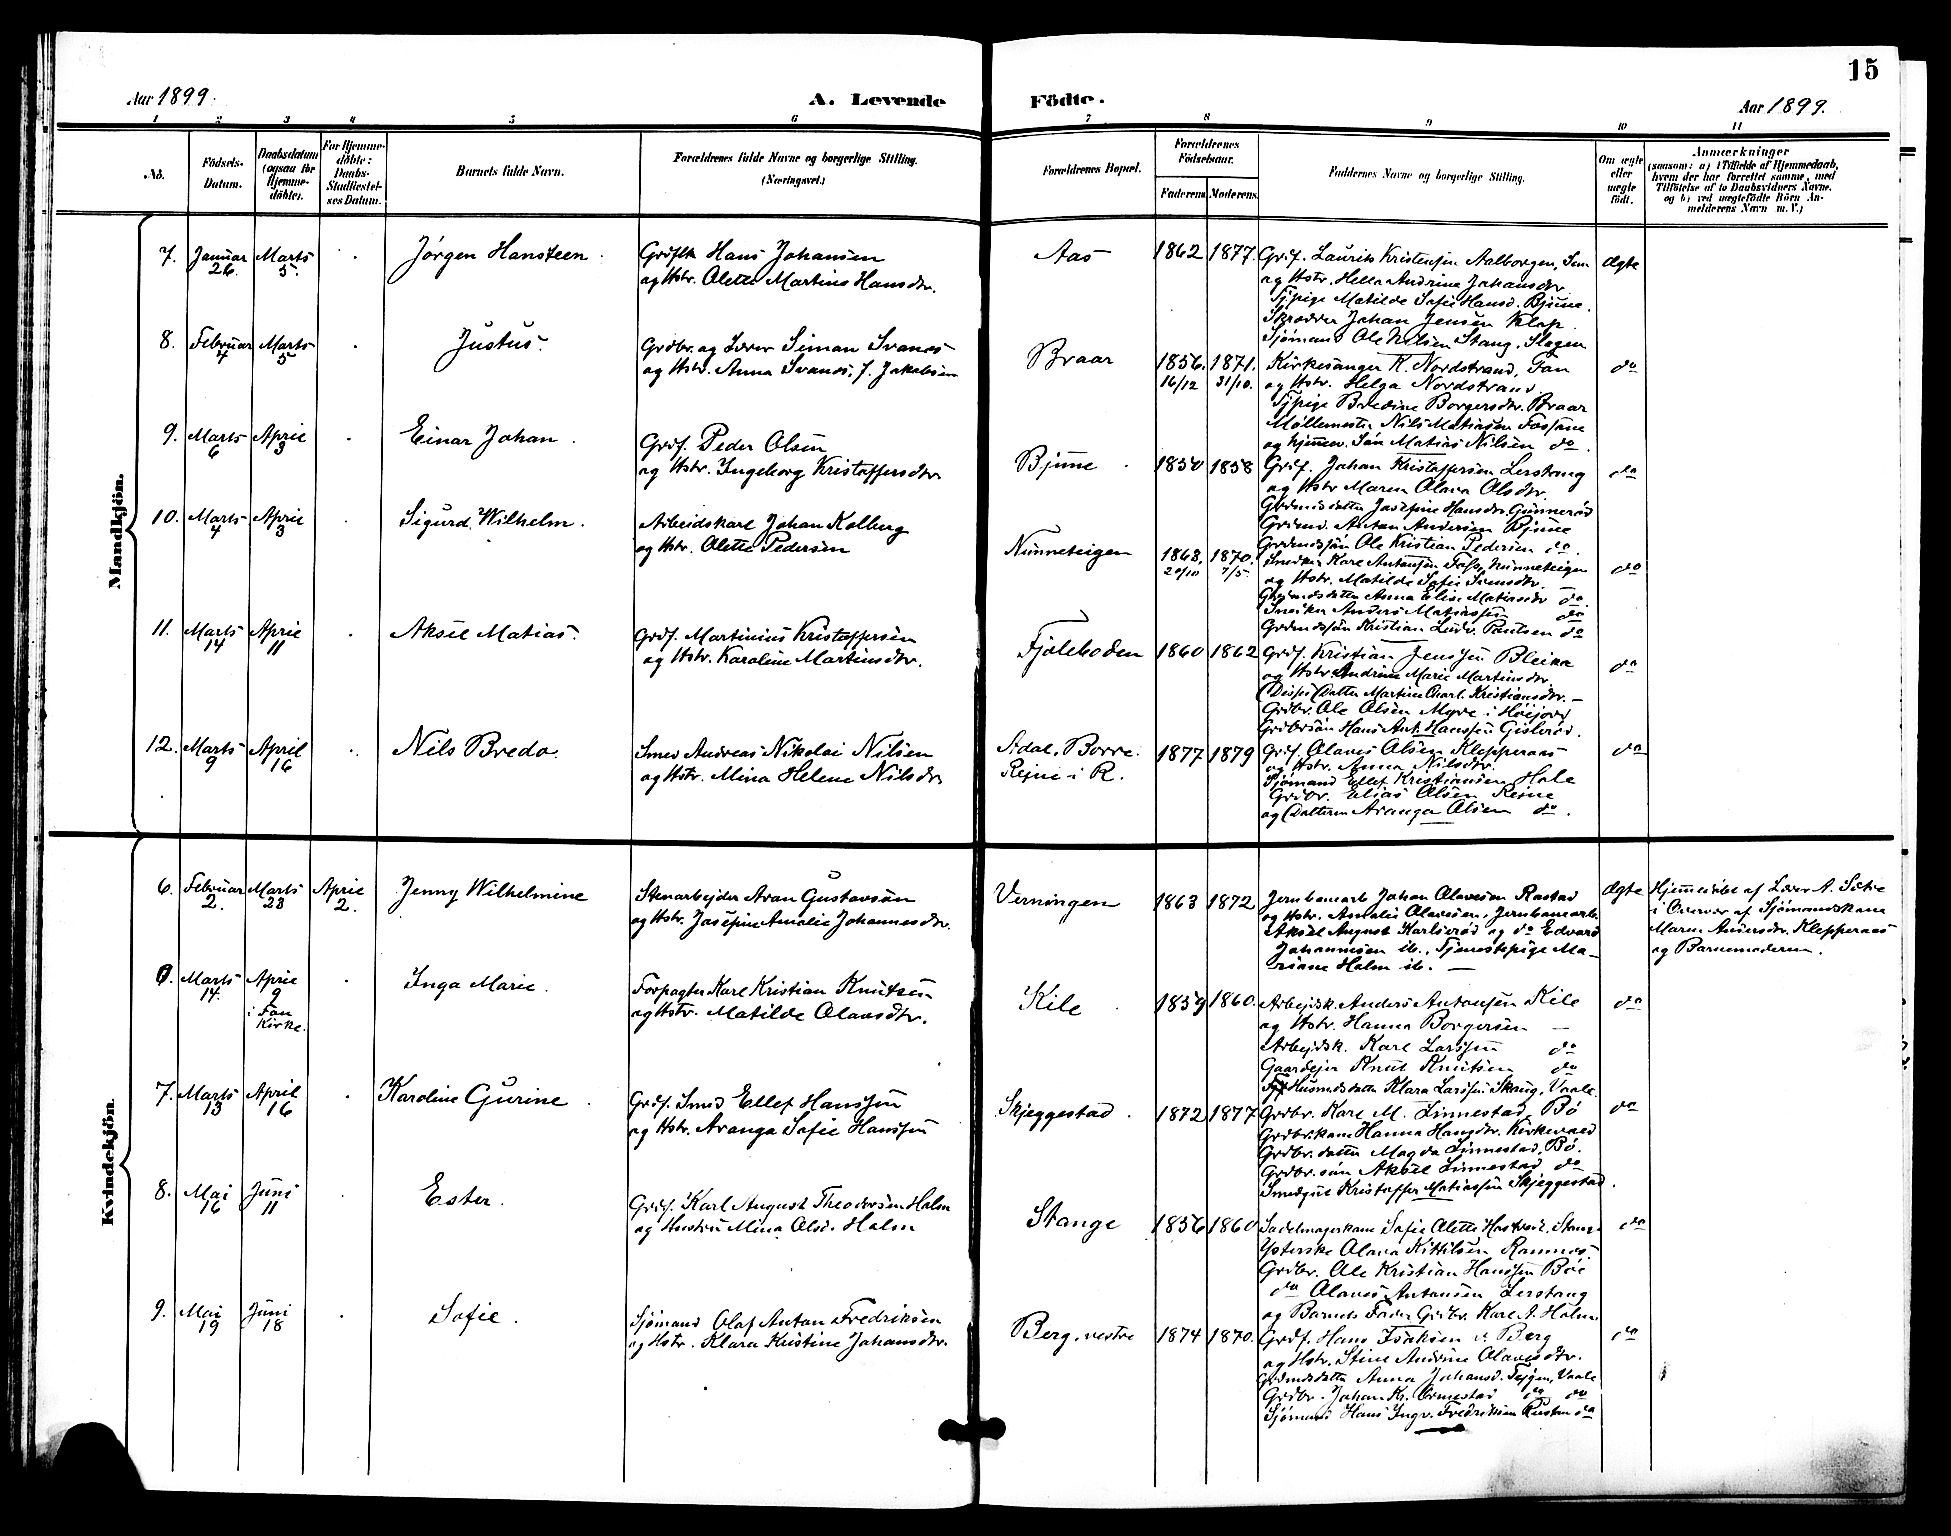 15
Aar 1899.
A. Levende Födte.
Aar 1899.
1 2 3 4 5 6 7 8 9 10 11
No.
Födsels-
Datum.
Daabsdatum
(ogsaa for
Hjemme-
döbte).
For Hjemme-
döbte:
Daabs-
Stadfæstel-
ses Datum.
Barnets fulde Navn.
Forældrenes fulde Navne og borgerlige Stilling.
(Næringsvei.)
Forældrenes Bopæl.
Forældrenes
Födselsaar.
Faderens Moderens.
Faddernes Navne og borgerlige Stilling.
Om ægte
eller
uægte
födt.
Anmærkninger
(saasom: a) i Tilfælde af Hjemmedaab,
hvem der har forrettet samme, med
Tilföielse af to Daabsvidners Navne,
og b) ved uægtefödte Börn An-
melderens Navn m. V.)
Mandkjön.
7. Januar 26. Marts 5.
Jørgen Hansteen.
Hans Johansen
og Hstr. Olette Martine Hansdtr.
Aas
1862 1877.
Grdf. Laurits Kristensen Aalborgen, Sem
og Hstr. Hella Andrine Johansdtr.
Tjpige Matilde Sofie Hansd. Bjune.
Skrædder Johan Jensen Klop.
Sjømand Ole Nilsen Stang, Slagen
ægte
8. Februar 4 Marts 5
Justus.
Grdbr. og Lærer Simon Svanes
og Hstr. Anna Svanes, f. Jakobsen
Braar
1856. 16/12 1871. 31/10.
Kirkesanger K. Nordstrand, Fon
og Hstr. Helga Nordstrand.
Tjpige Bredine Borgersdtr. Braar
Møllemester Nils Matiasen Fossane
og hjemmev. Søn Matias Nilsen do.
do
9. Marts 6 April 3
Einar Johan.
Grdf. Peder Olsen
og Hstr. Ingeborg Kristoffersdtr.
Bjune
1850 1858
Grdf. Johan Kristoffersen Lerstang
og Hstr Maren Olava Olsdtr.
Grdmdsdatter Josefine Hansdtr. Gunnerød
Grdmd. Anton Andersen Bjune
Grdmdssøn Ole Kristian Pedersen do.
do
10. Marts 4 April 3
Sigurd Wilhelm.
Arbeidskarl Johan Kolberg
og Hstr. Olette Pedersen
Nunneteigen
1868. 20/10 1870. 7/5.
Karl Antonsen Foss, Nunneteigen
og Hstr. Matilde Sofie Svensdtr.
Grdmdsdatter Anna Elise Matiasdtr do
Snekker Anders Matiassen do
Grdmdssøn Kristian Ludv. Paulsen do
do
11. Marts 14 April 11
Aksel Matias.
Grdf. Martinius Kristoffersen
og Hstr. Karoline Martinsdtr.
Fjøleboden
1860 1862
Grdf. Kristian Jenssen Bleika
og Hstr. Andrine Marie Martinsdtr.
Datter Martine Charl. Kristiansdtr.
Grdbr. Ole Olsen Myre i Høijord
Grdbrsøn Hans Ant. Hanssen Gislerød.
do
12. Marts 9 April 16
Nils Bredo.
Smed Andreas Nikolai Nilsen
og Hstr. Mina Helene Nilsdtr
Adal, Borre.
Rejne i R.
1877 1879
Grdf. Olaves Olsen Klepperaas
og Hstr. Anna Nilsdtr.
Sjømand Ellef Kristiansen Hole
Grdbr. Elias Olsen Rejne
og Datteren Aranga Olsen do.
do
Kvindekjön.
6. Februar 2. Marts 23 April 2.
Jenny Wilhelmine
Stenarbejder Aron Gustavsøn
og Hstr. Josefine Amalie Johannesdtr.
Verningen
1863 1872
Jernbanearb Johan Olavesøn Rastad
og Hstr. Amalie Olavesen, Jernbanearb.
Aksel August Karlserød og do Edvard
Johannesen ib., Tjenestepige Ma-
riane Holm ib.
ægte
Hjemmedøbt af Lærer A. Sætre
i Overvær af Sjømandskone
Maren Andersdtr. Klepperaas
og Barnemoderen.
6 Marts 14. April 9 i Fon Kirke.
Inga Marie.
Forpagter Karl Kristian Knutsen
og Hstr. Matilde Olavesdtr.
Kile
1859 1860.
Arbejdsk. Anders Antonsen Kile
og Hstr. Hanna Borgersen
Arbejdsk. Karl Larssen do
Gaardejer Knut Knutsen do
Husmdsdatter Klara Larssen Skaug, Vaale.
do
7. Marts 13 April 16
Karoline Gurine
Grdf. Smed Ellef Hanssen
og Hstr. Aranga Sofie Hanssen
Skjeggestad.
1872 1877
Grdbr. Karl M. Linnestad, Bø
Grdbr.kone Hanna Hansdtr. Kirkevold
Grdbr. datter Magda Linnestad, Bø.
Grdbr. søn Aksel Linnestad do
Smedgut Kristoffer Matiassen Skjeggestad.
do
8. Mai 16 Juni 11
Ester.
Grdf. Karl August Theodorsen Holm
og Hustru Mina Olsd. Holm
Stange
1856 1860
Sadelmagerkone Sofie Olette Stange
Ysterske Olava Kittilsen Ramnes.
Grdbr. Ole Kristian Hanssen Bøe
do Olaves Antonsen Lerstang
og Barnets Fader Grdbr. Karl A. Holm
do
9. Mai 19 Juni 18
Sofie.
Sjømand Olaf Anton Fredriksen
og Hstr. Klara Kristine Johansdtr.
Berg, vestre
1874 1870.
Grdf. Hans Isaksen v. Berg
og Hstr. Stine Andrine Olavesdtr.
Grdmdsdatter Anna Johansd. Vaale
Grdbr. Johan Kr. Ormestad do do
Sjømand Hans Ingv. Fredriksen Rusten do
do